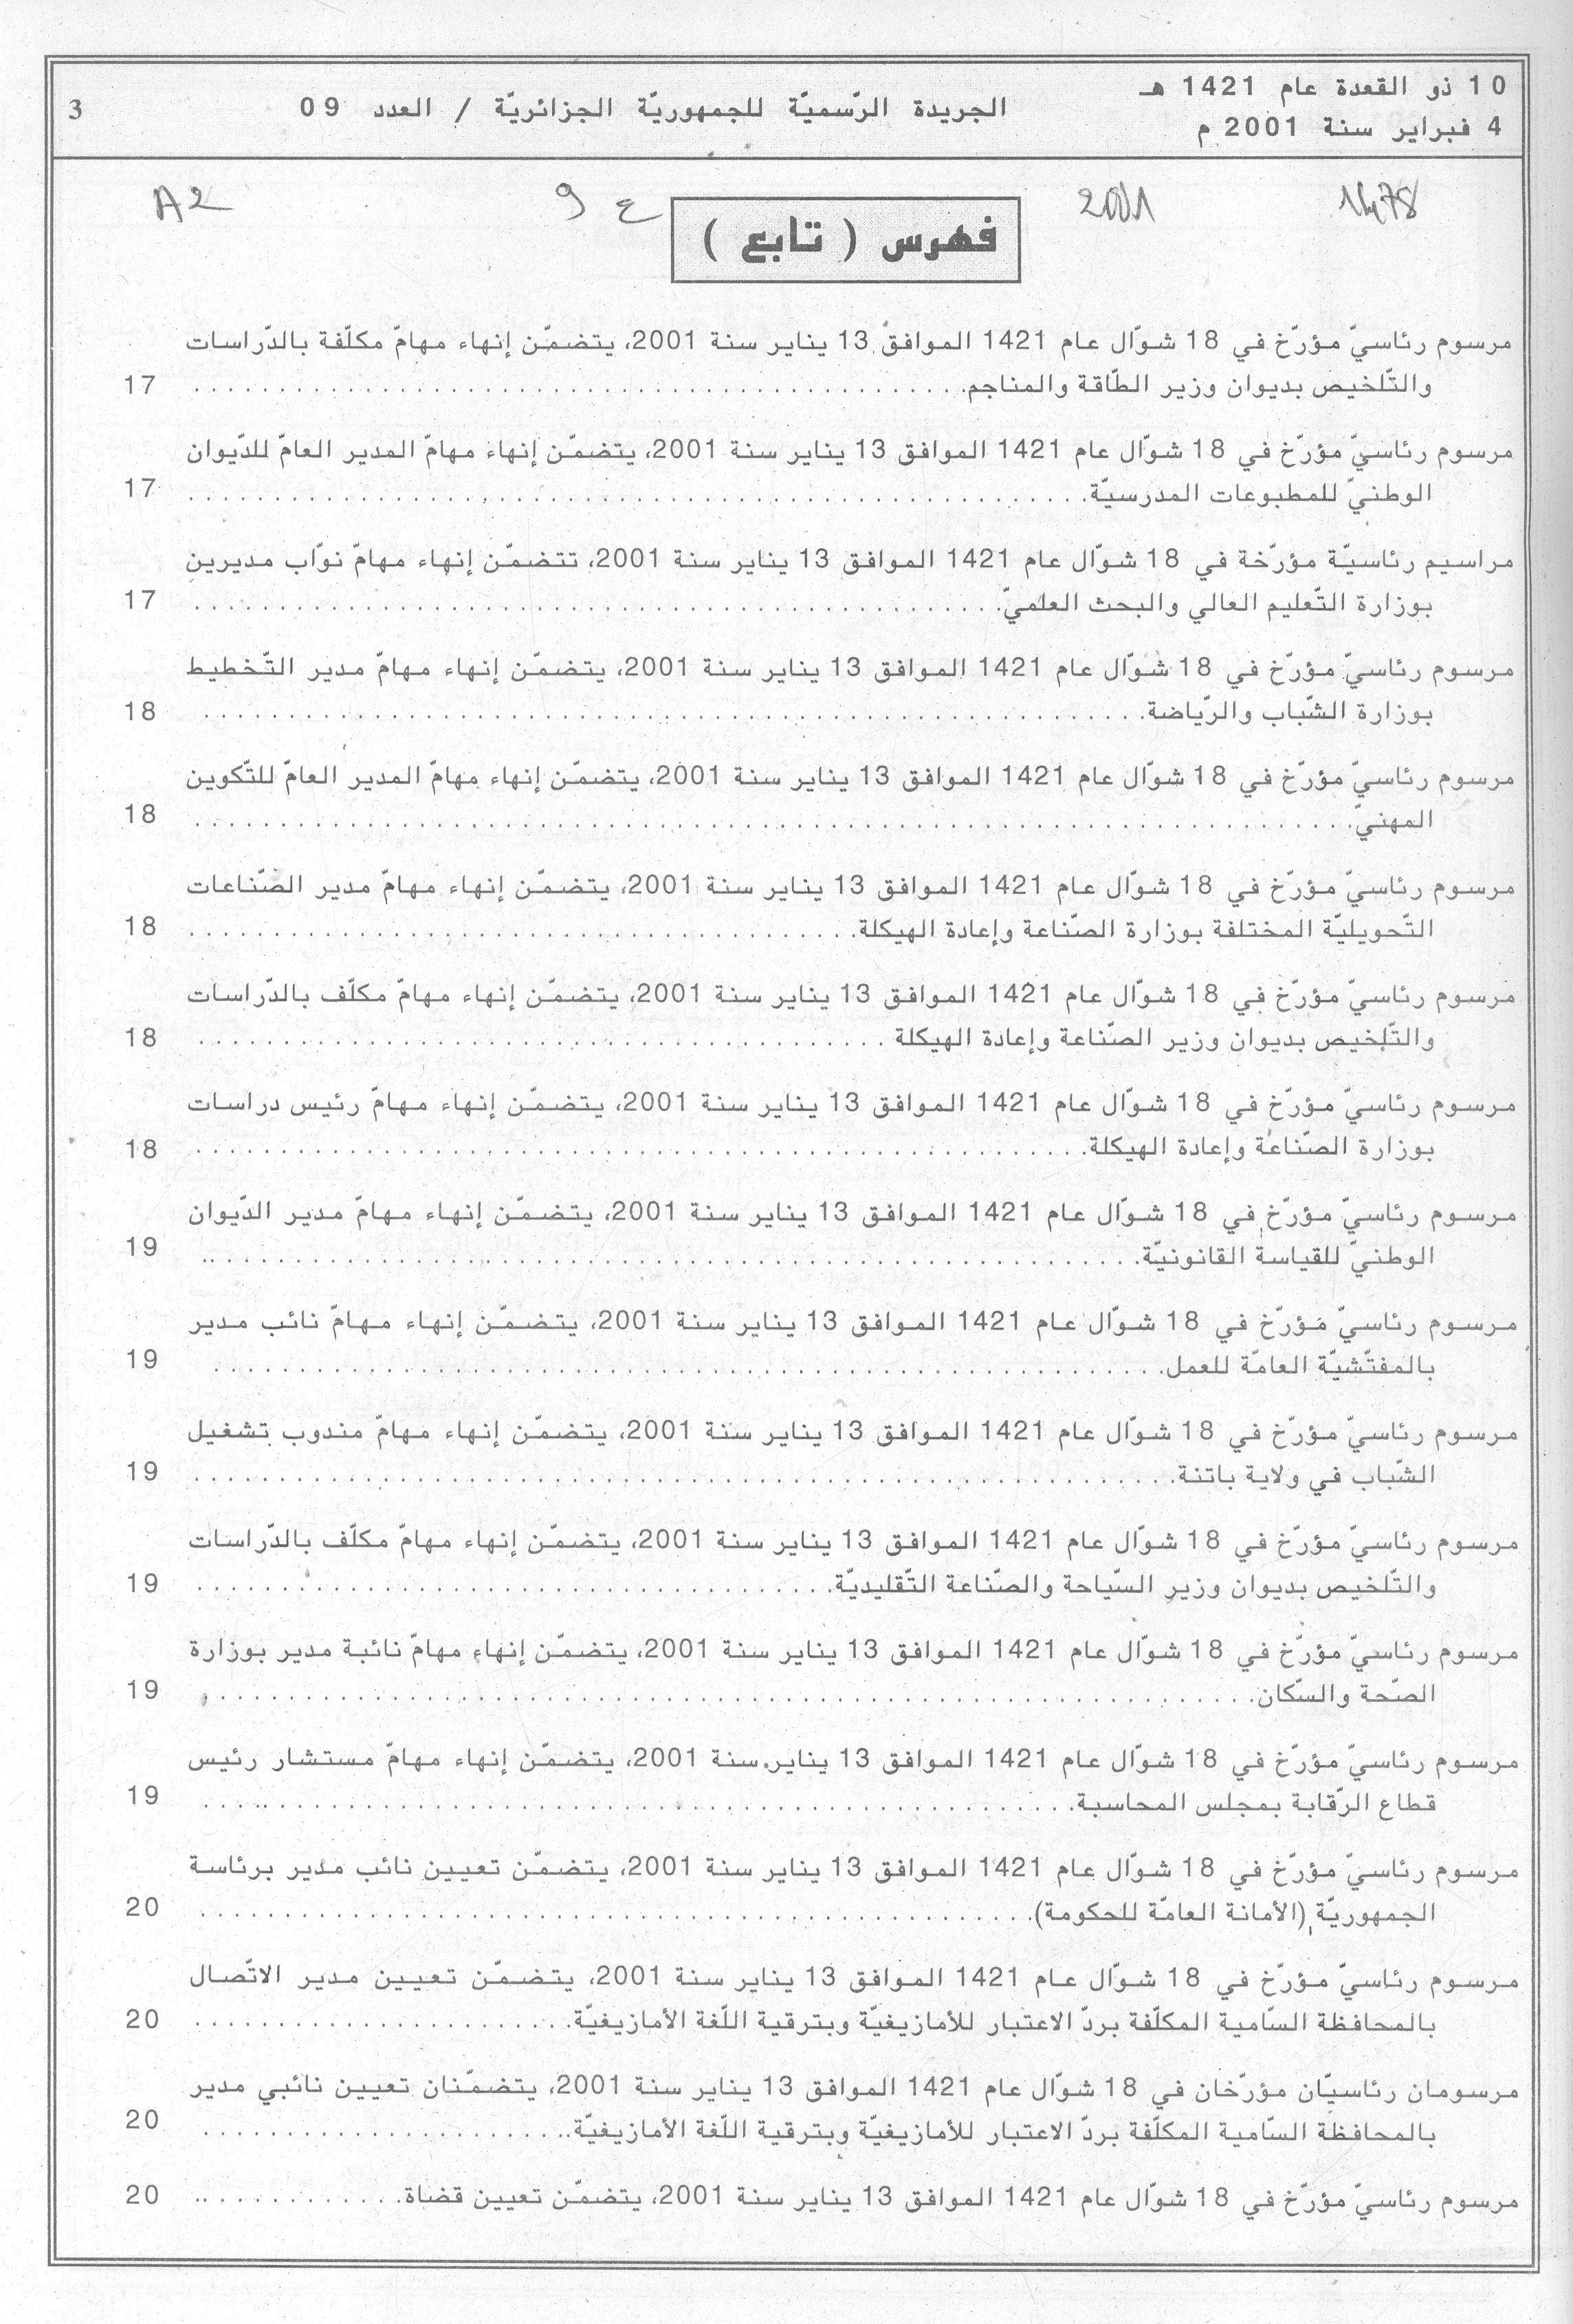 10 ذو القعدة عام 1421 هـ
4 فبراير سنة 2001 م
الجريدة الرّسميّة للجمهوريّة الجزائريّة / العدد 09
3
1478
2001
ع 9
A2
فهرس ( تابع )
مرسوم رئاسيّ مؤرّخ في 18 شوّال عام 1421 الموافق 13 يناير سنة 2001، يتضمّن إنهاء مهامّ مكلّفة بالدّراسات
والتّلخيص بديوان وزير الطّاقة والمناجم. 17
مرسوم رئاسيّ مؤرّخ في 18 شوّال عام 1421 الموافق 13 يناير سنة 2001، يتضمّن إنهاء مهامّ المدير العامّ للدّيوان
الوطنيّ للمطبوعات المدرسيّة. 17
مراسيم رئاسيّة مؤرّخة في 18 شوّال عام 1421 الموافق 13 يناير سنة 2001، تتضمّن إنهاء مهامّ نوّاب مديرين
بوزارة التّعليم العالي والبحث العلميّ. 17
مرسوم رئاسيّ مؤرّخ في 18 شوّال عام 1421 الموافق 13 يناير سنة 2001، يتضمّن إنهاء مهامّ مدير التّخطيط
بوزارة الشّباب والرّياضة. 18
مرسوم رئاسيّ مؤرّخ في 18 شوّال عام 1421 الموافق 13 يناير سنة 2001، يتضمّن إنهاء مهامّ المدير العامّ للتّكوين
المهنيّ. 18
مرسوم رئاسيّ مؤرّخ في 18 شوّال عام 1421 الموافق 13 يناير سنة 2001، يتضمّن إنهاء مهامّ مدير الصّناعات
التّحويليّة المختلفة بوزارة الصّناعة وإعادة الهيكلة. 18
مرسوم رئاسيّ مؤرّخ في 18 شوّال عام 1421 الموافق 13 يناير سنة 2001، يتضمّن إنهاء مهامّ مكلّف بالدّراسات
والتّلخيص بديوان وزير الصّناعة وإعادة الهيكلة. 18
مرسوم رئاسيّ مؤرّخ في 18 شوّال عام 1421 الموافق 13 يناير سنة 2001، يتضمّن إنهاء مهامّ رئيس دراسات
بوزارة الصّناعة وإعادة الهيكلة. 18
مرسوم رئاسيّ مؤرّخ في 18 شوّال عام 1421 الموافق 13 يناير سنة 2001، يتضمّن إنهاء مهامّ مدير الدّيوان
الوطنيّ للقياسة القانونيّة. 19
مرسوم رئاسيّ مؤرّخ في 18 شوّال عام 1421 الموافق 13 يناير سنة 2001، يتضمّن إنهاء مهامّ نائب مدير
بالمفتّشيّة العامّة للعمل. 19
مرسوم رئاسيّ مؤرّخ في 18 شوّال عام 1421 الموافق 13 يناير سنة 2001، يتضمّن إنهاء مهامّ مندوب تشغيل
الشّباب في ولاية باتنة. 19
مرسوم رئاسيّ مؤرّخ في 18 شوّال عام 1421 الموافق 13 يناير سنة 2001، يتضمّن إنهاء مهامّ مكلّف بالدّراسات
والتّلخيص بديوان وزير السّياحة والصّناعة التّقليديّة. 19
مرسوم رئاسيّ مؤرّخ في 18 شوّال عام 1421 الموافق 13 يناير سنة 2001، يتضمّن إنهاء مهامّ نائبة مدير بوزارة
الصّحة والسّكان. 19
مرسوم رئاسيّ مؤرّخ في 18 شوّال عام 1421 الموافق 13 يناير سنة 2001، يتضمّن إنهاء مهامّ مستشار رئيس
قطاع الرّقابة بمجلس المحاسبة. 19
مرسوم رئاسيّ مؤرّخ في 18 شوّال عام 1421 الموافق 13 يناير سنة 2001، يتضمّن تعيين نائب مدير برئاسة
الجمهوريّة (الأمانة العامّة للحكومة). 20
مرسوم رئاسيّ مؤرّخ في 18 شوّال عام 1421 الموافق 13 يناير سنة 2001، يتضمّن تعيين مدير الاتّصال
بالمحافظة السّامية المكلّفة بردّ الاعتبار للأمازيغيّة وبترقية اللّغة الأمازيغيّة. 20
مرسومان رئاسيّان مؤرّخان في 18 شوّال عام 1421 الموافق 13 يناير سنة 2001، يتضمّنان تعيين نائبي مدير
بالمحافظة السّامية المكلّفة بردّ الاعتبار للأمازيغيّة وبترقية اللّغة الأمازيغيّة. 20
مرسوم رئاسيّ مؤرّخ في 18 شوّال عام 1421 الموافق 13 يناير سنة 2001، يتضمّن تعيين قضاة. 20